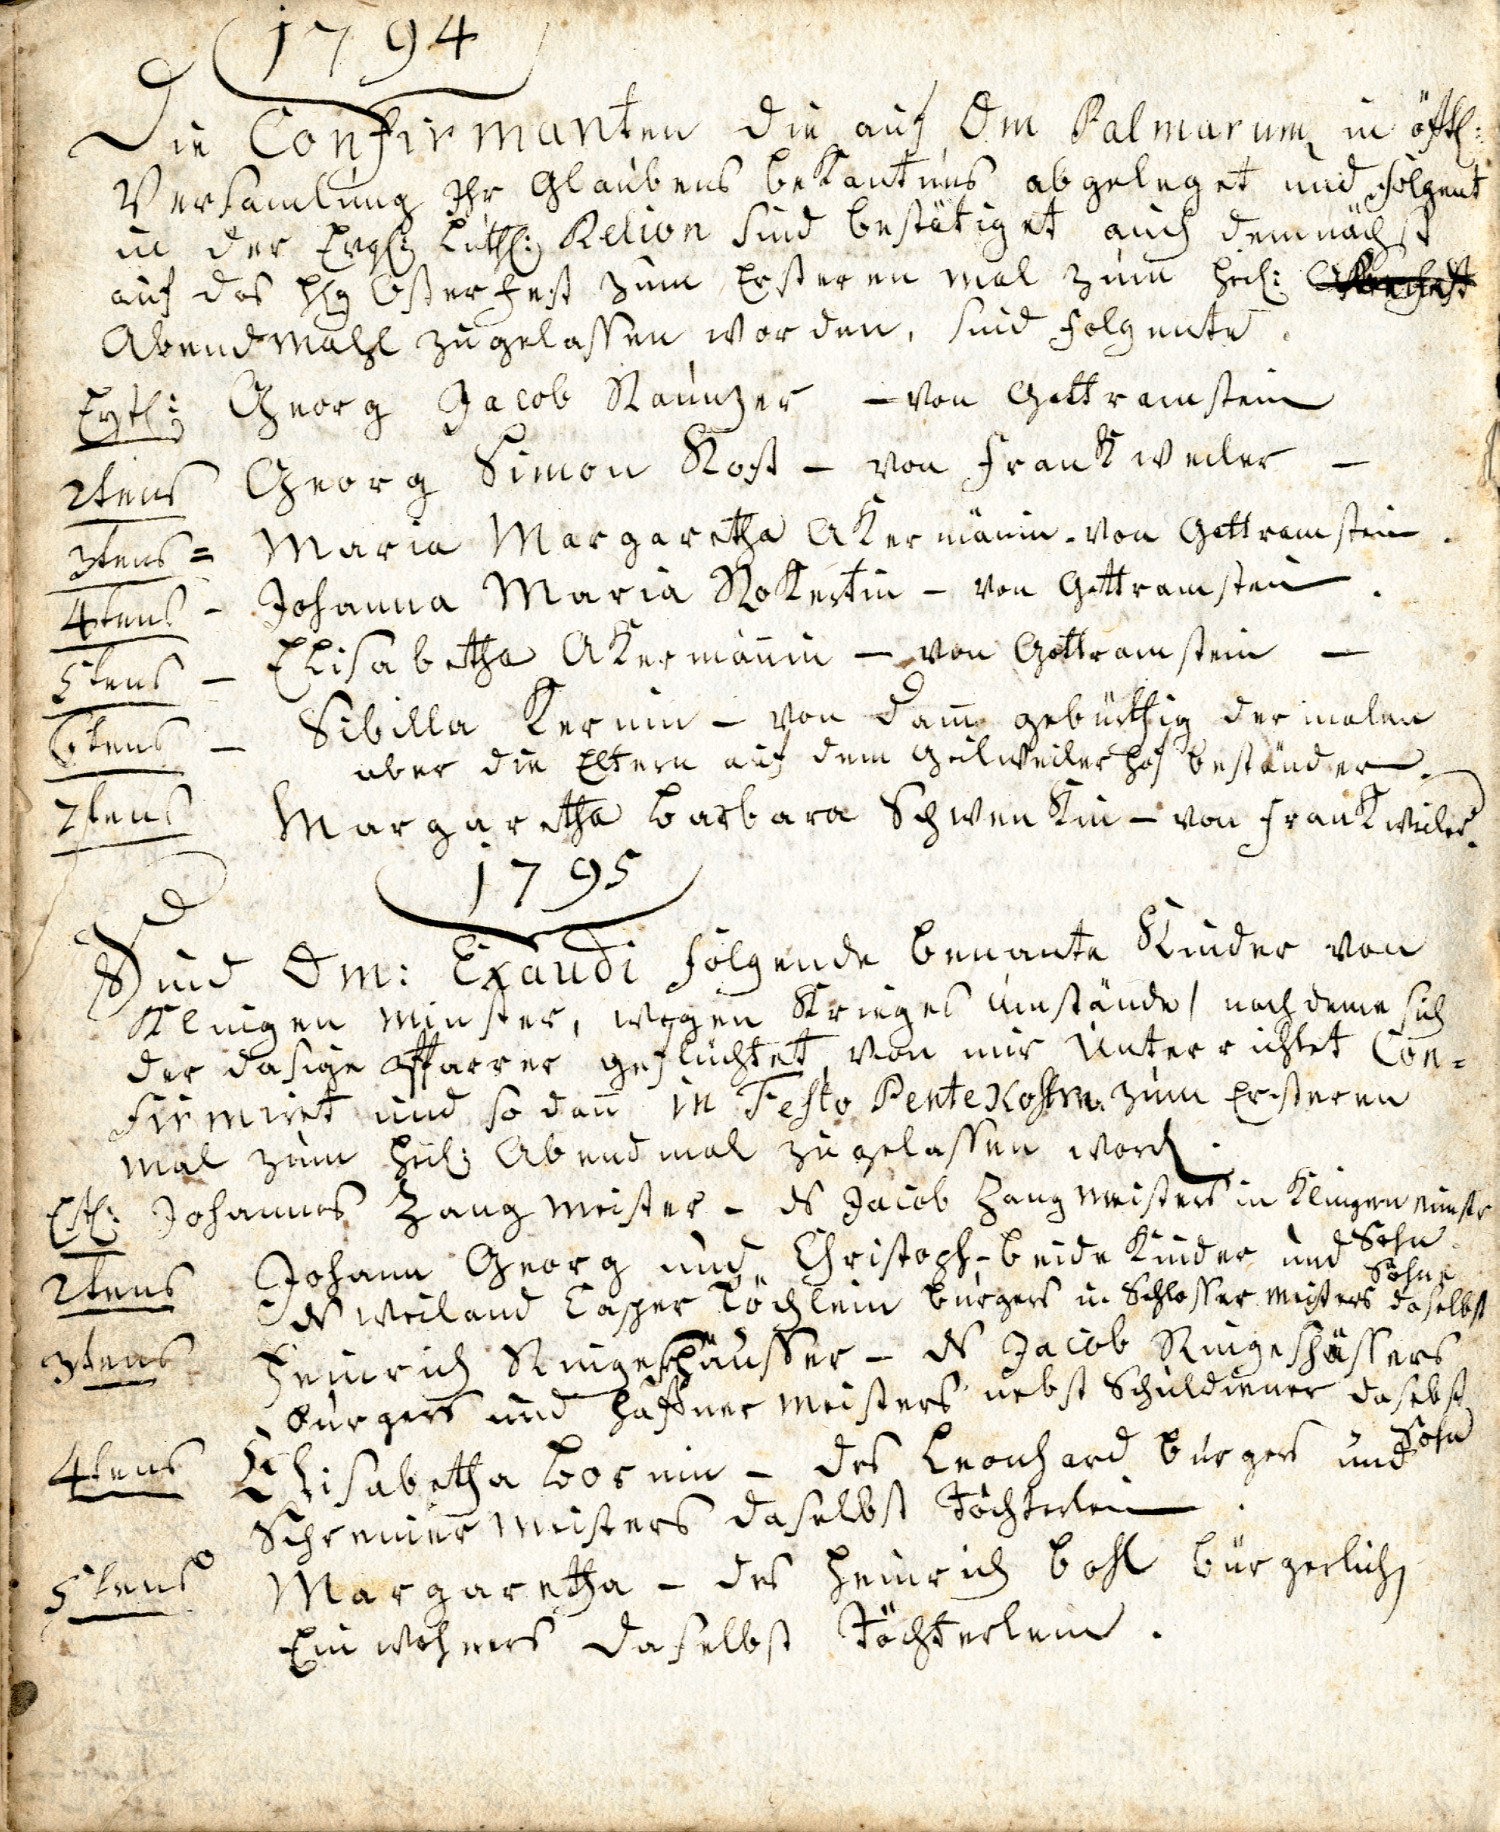 1794
Die Confirmanten die auf Dm Palmarum in öftl:
Versamlung Ihr Glaubens beKantnus abgeleget und folgent
in der Evgl: Luth: Relion sind bestätiget auch demnächst
auf das hlg Osterfest zum Ersteren mal zum heil:
Abendmahl zugelassen worden, sind folgente.
Erstl: Georg Jacob Kauntzer – von Gottramstein
2tens Georg Simon Kost – von FranKweiler –
3tens = Maria Margaretha AKermännin – von Gottramstein.
4tens – Johanna Maria RoKertin – von Gottramstein.
5tens – Elisabetha AKermännin – von Gottramstein –
6tens – Sibilla Kernin – von Dam gebürthig dermalen
aber die Eltern auf dem Geilweilerhof beständer.
7tens Margaretha Barbara SchwenKin – von FranKweiler.
1795
Sind Dm: Exaudi folgende benante Kinder von
Klingen minster, wegen Krieges umstände / nach deme sich
der dasige Pfarrer geflüchtet von mir Unterrichtet Con=
firmiret und so dan in Festo PenteKostm. zum Ersteren
mal zum heil: Abendmal zugelassen word.
Erstl: Johannes Zangmeister – ds Jacob Zangmeisters in Klingenminstr
Sohn.
2tens Johann Georg und Christoph – beide Kinder und Söhne
ds weiland Casper Löchlein burgers u. Schlosser meisters daselbst
3tens Heinrich Ringeshäusser – ds Jacob Ringeshässers
burgers und Haffner meisters nebst Schuldiener daselbst
Sohn
4tens Elisabetha Bosnin – des Leonhard burgers und
Schreiner meisters daselbst Töchterlein.
5tens Margaretha – des Heinrich bohl bürgerlich
Einwohners daselbst Töchterlein.